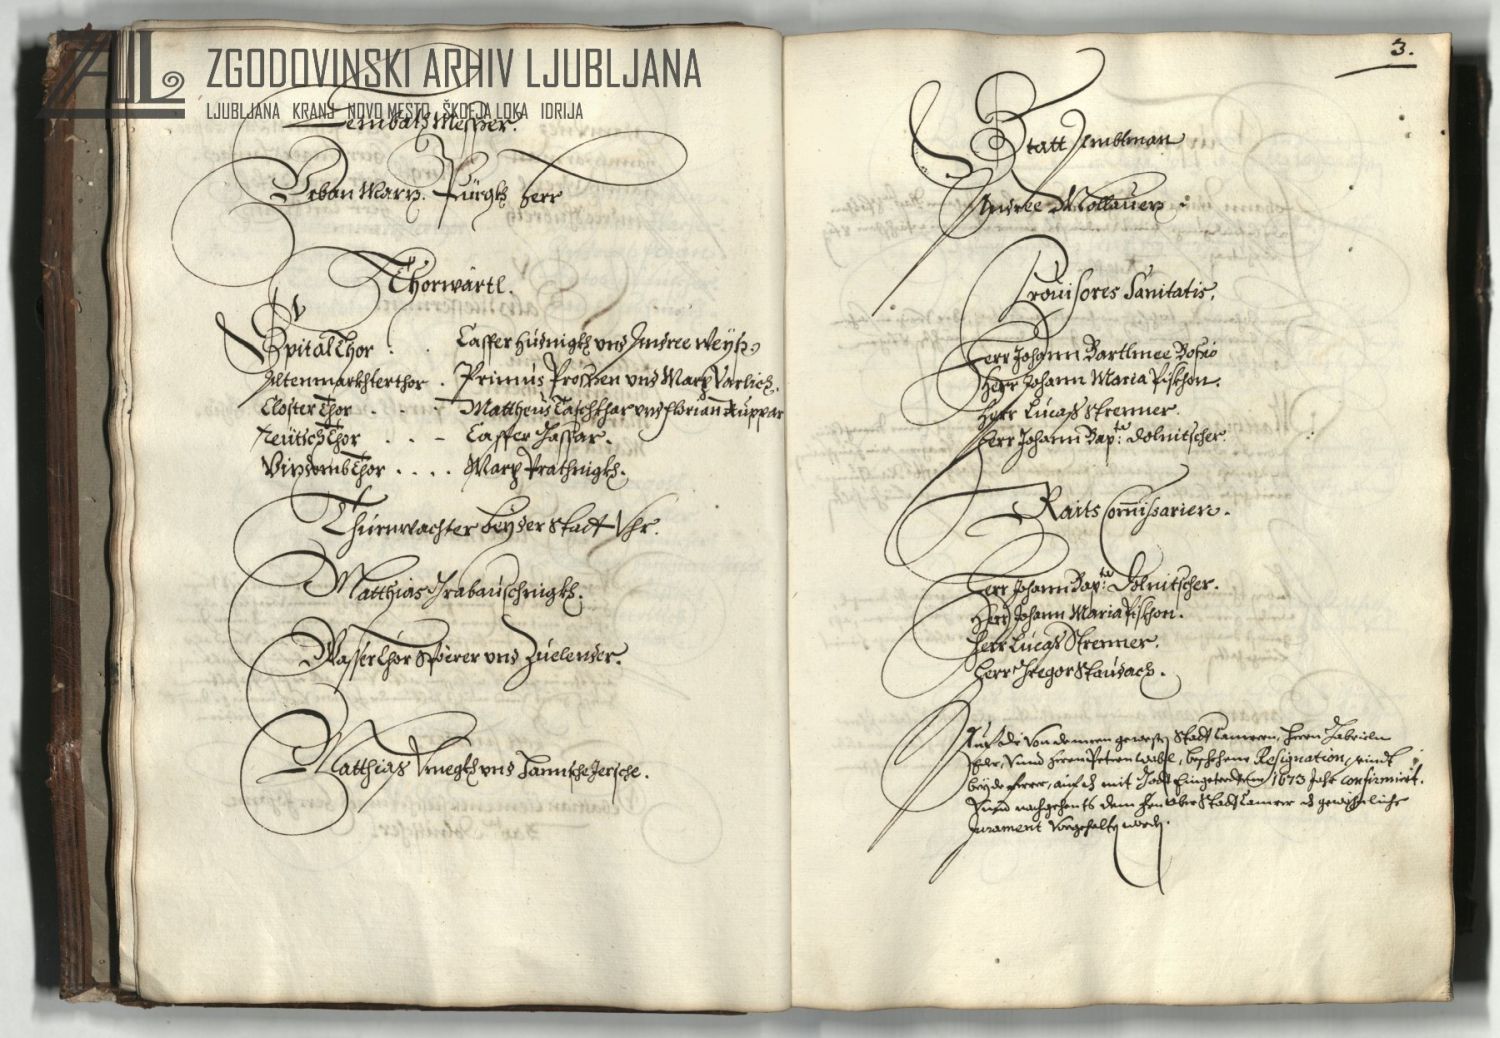 ZGODOVINSKI ARHIV LJUBLJANA
LJUBLJANA KRANJ NOVO MESTO ŠKOFJA LOKA IDRIJA
Vrban Marx. Pürgkh herr
Thorwärtl.
Spital Thor . . Casper Hudnigkh vnd Andree Weyß
Altenmarkhterthor . Primus Prossen vnd Marx Varlich.
Closter Thor . . . Mattheus Taschkhar vnd Florian Kuppar
Teutsch Thor . . - Casper Jassar.
Vizdomb Thor . . . . Marx Prathnigkh.
Thurnwachter beyder Statt Vhr.
Matthias Grabauschnigkh.
Wasser Thor Spörer vnd Zuelender.
Matthias Vmegkh vnd Jannsche Jersche.
3.
Statt Ambtman
Andree Mollauerz.
Prouisores Sanitatis.
Herr Johann Bartlmee Bosio
Herr Johann Maria Pischon.
Herr Lucaß Strenner.
Herr Johann Bap:ta Dolnitscher
Raits Commissarien.
Herr Johann Bap:ta Dolnitscher.
Herr Johann Maria Pischon.
Herr Lucaß Strenner.
Herr Gregor Staudach.
von denen gewesten Statt Camrern, Herrn Gabrieln
Vnnd Herrn Petern beschehene Resignation, seindt
beyde Herrn, auf mit Gott Eingetretten 1673 Jahr confirmirt.
Vnnd nachgehents dem Herrn Ober Statt Camrer gewöhnliche
Jurament Vorgehalten worden.